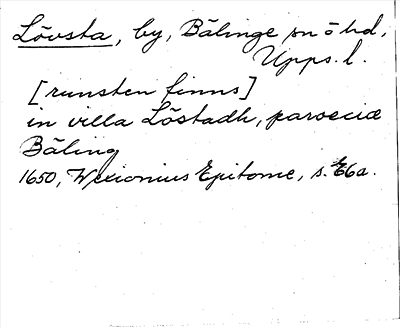 Lövsta, by, Bälinge sn o hd,
Upps. l.
[runsten finns]
in villa Löstadh, paroeciæ
Bäling
1650, Wexionius Epitome, s. E6a.